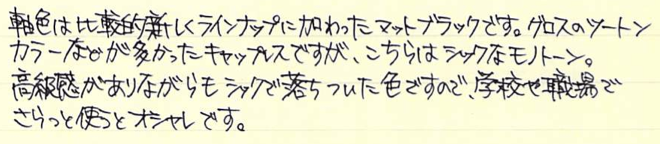 軸色は比較的新しくラインナップに加わったマットブラックです。グロスのツートン
カラーなどが多かったキャップレスですが、こちらはシックなモノトーン。
高級感がありながらもシックで落ちついた色ですので、学校や職場で
さらっと使うとオシャレです。